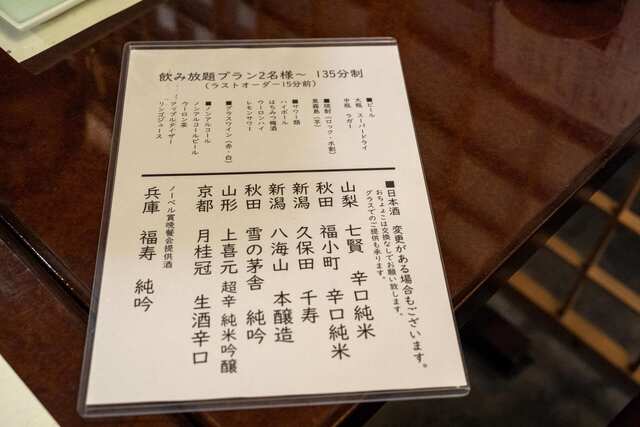 飲み放題プラン2名様～ 135分制
（ラストオーダー15分前）
■ビール
大瓶 スーパードライ
中瓶 ラガー
■焼酎（ロック・水割）
黒霧島（芋）
■サワー類
ハイボール
はちみつ梅酒
ウーロンハイ
レモンサワー
■グラスワイン（赤・白）
■ノンアルコール
ノンアルコールビール
ウーロン茶
アップルタイザー
リンゴジュース
■日本酒 変更がある場合もございます。
おちょこは交換なしでお願い致します。
グラスでのご提供も承ります。
山梨 七賢 辛口純米
秋田 福小町 辛口純米
新潟 久保田 千寿
新潟 八海山 本醸造
秋田 雪の茅舎 純吟
山形 上喜元 超辛 純米吟醸
京都 月桂冠 生酒辛口
ノーベル賞晩餐会提供酒
兵庫 福寿 純吟